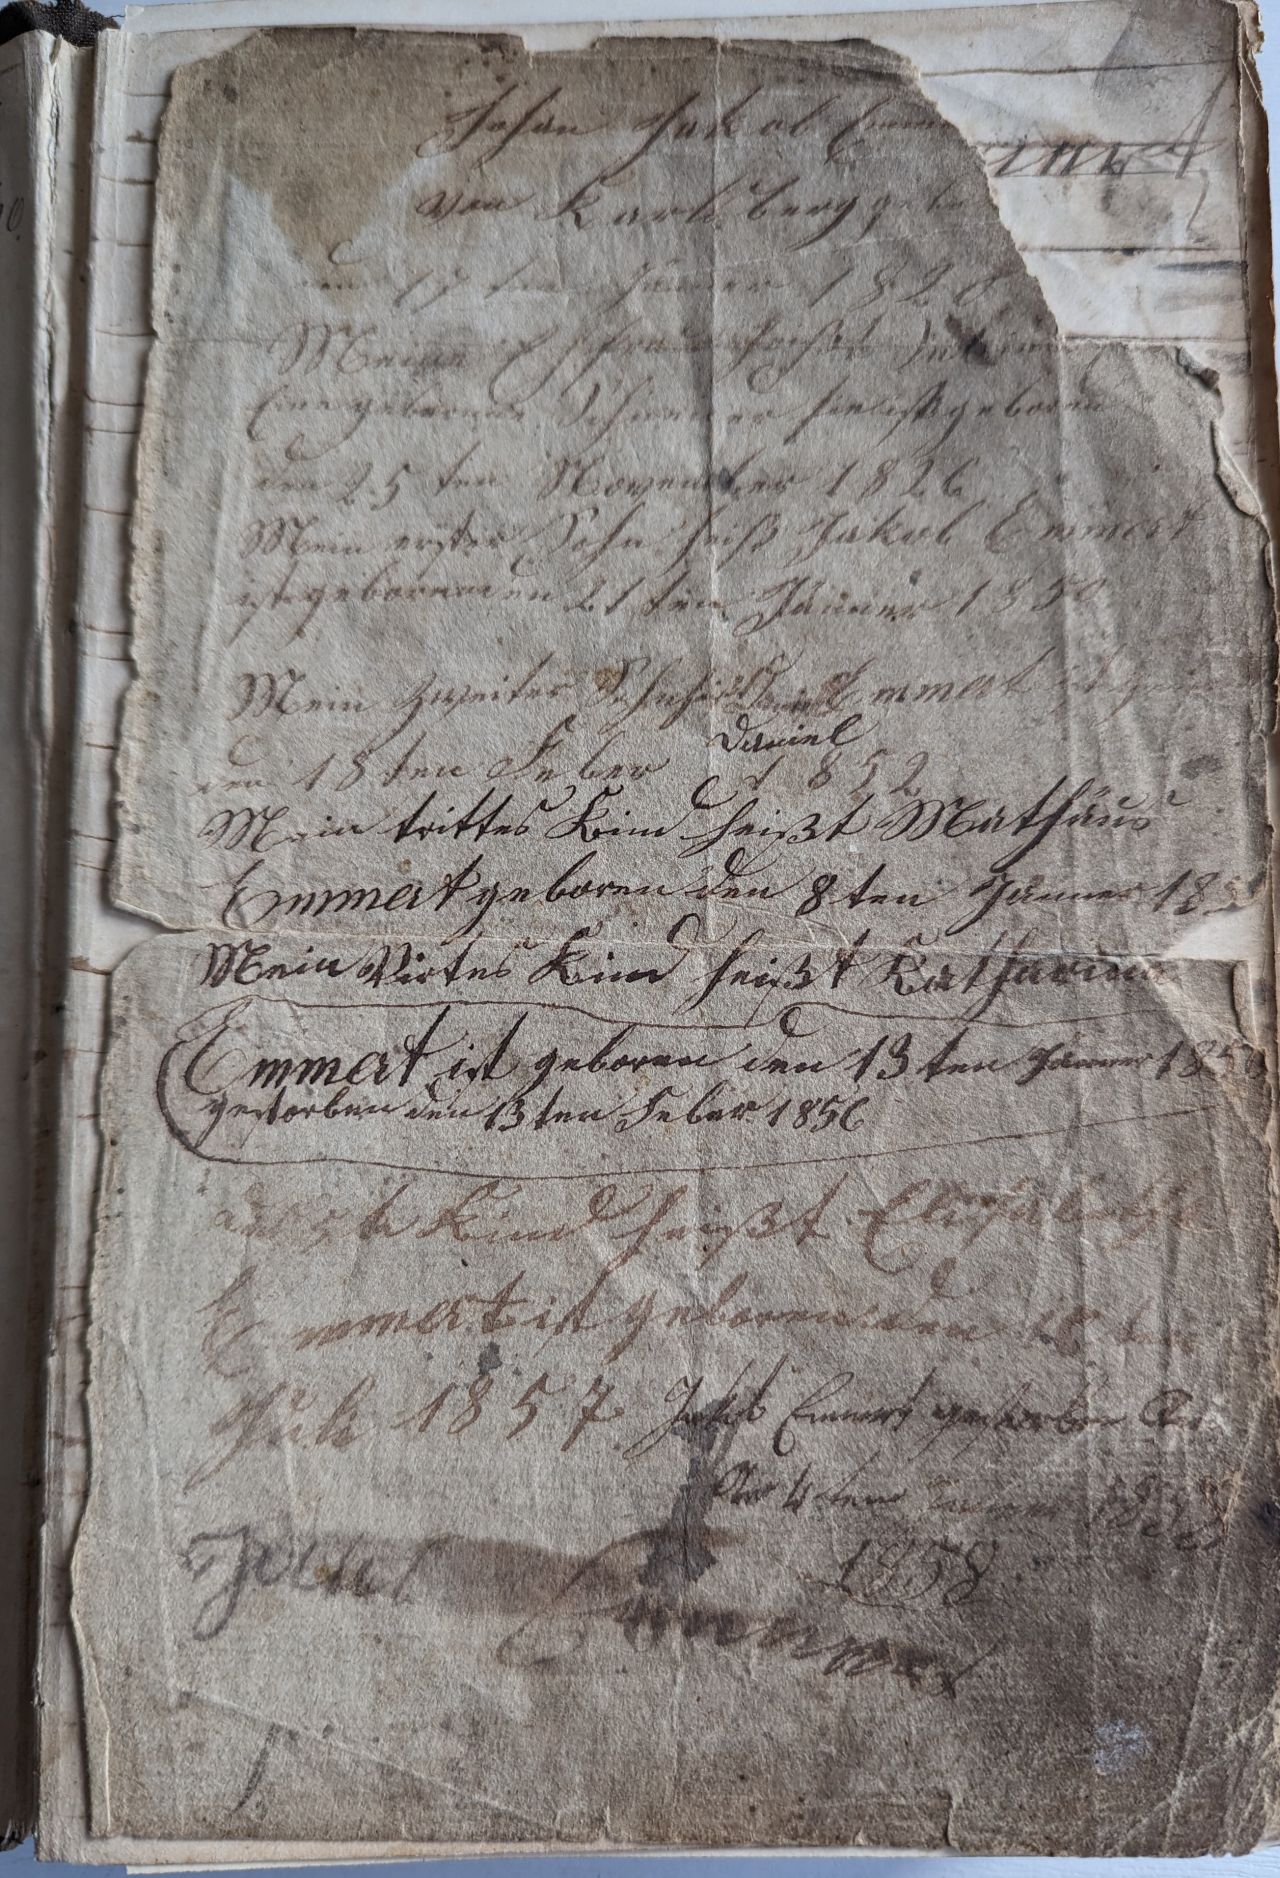 Johan Jakob Emm
von Karlsberg geb
den 17 ten Jänner 182
Meine Ehfrau
Eine geborene sie ist geboren
den 25 ten November 1826
Mein erster Sohn heiß Jakob Emmert
ist geboren den 21 ten Jänner 1850
Mein zweiter Sohn heißt Emmert ist
Daniel
den 18 ten Feber 1852
Mein trittes Kind heißt Mathäus
Emmert geboren den 8 ten Jänner 18
Mein Virtes Kind heißt Katharina
Emmert ist geboren den 13 ten Jänner 1856
gestorben den 13 ten Feber 1856
Kind heißt Elisabethe
Emmert ist geboren den 18 ten
Juli 1857 Jakob Emmert gestorben
4 ten Jänner 1858
1858
Jakob Emmert